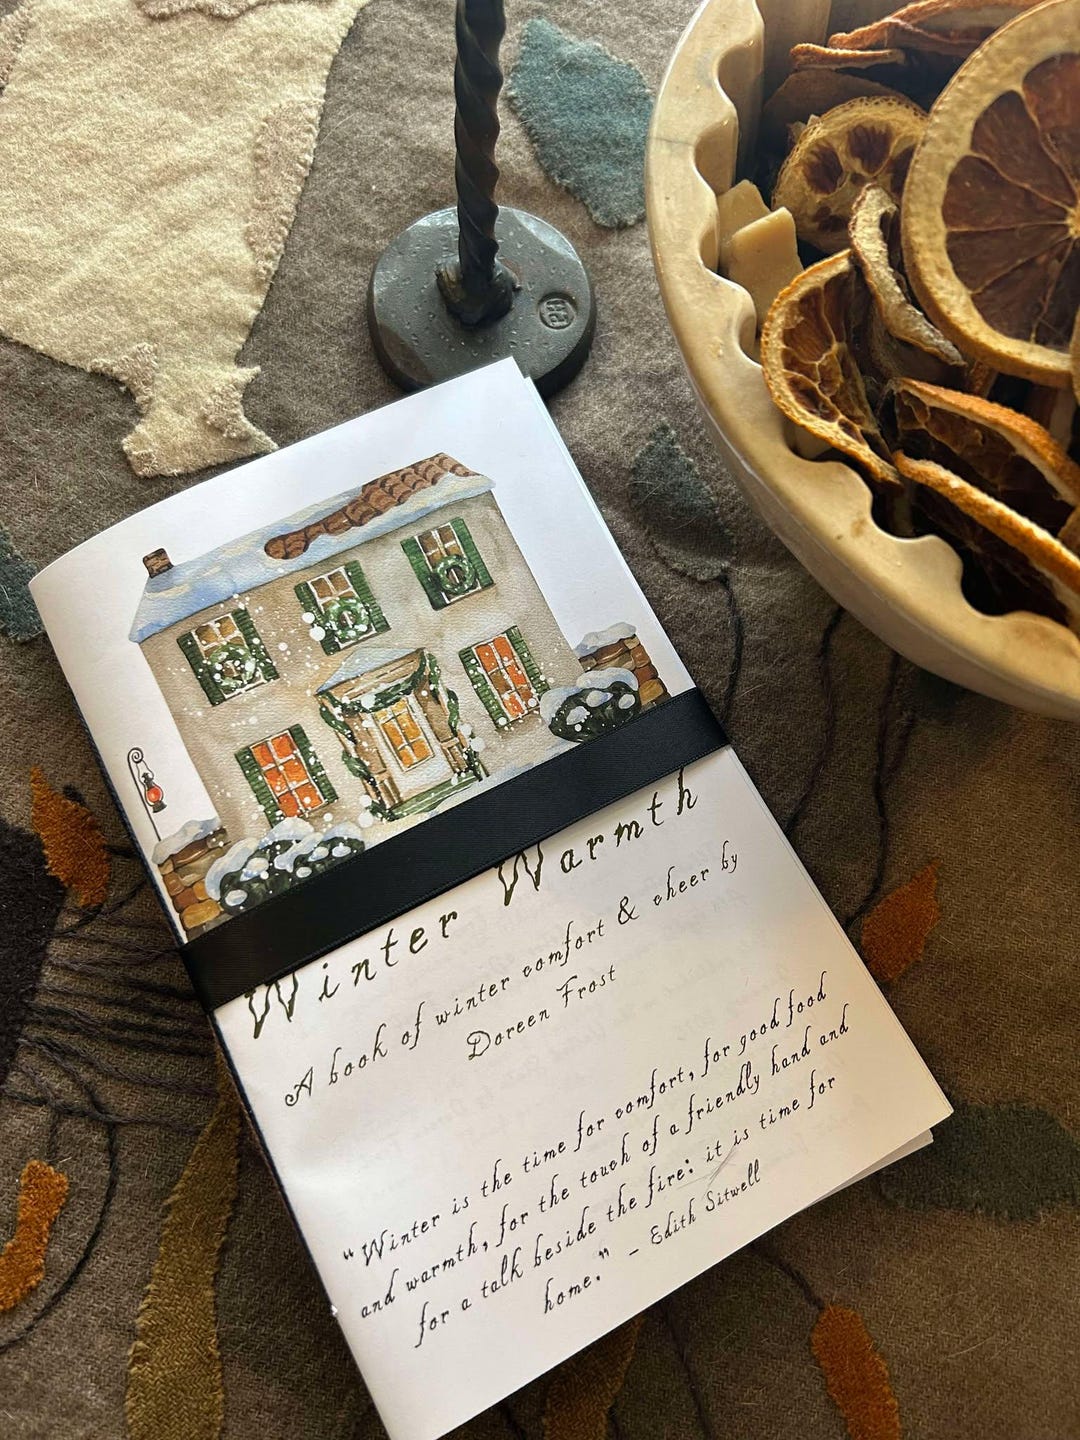 Winter Warmth
A book of winter comfort & cheer by
Doreen Frost
“Winter is the time for comfort, for good food
and warmth, for the touch of a friendly hand and
for a talk beside the fire: it is time for
home.” - Edith Sitwell